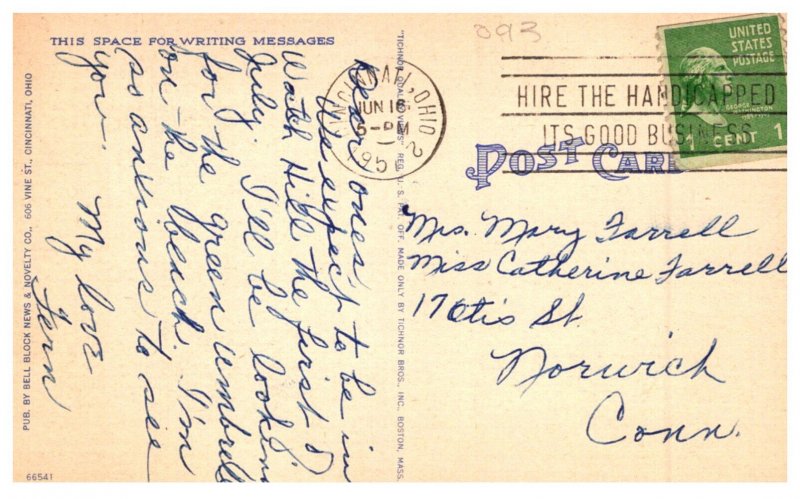 THIS SPACE FOR WRITING MESSAGES
Dear ones,
We expect to be in
Watch Hill the first of
July. I'll be looking
for the green umbrella
on the beach. I'm
so anxious to see
you.
My love
Fern
PUB. BY BELL BLOCK NEWS & NOVELTY CO., 606 VINE ST., CINCINNATI, OHIO
66541
"TICHNOR QUALITY VIEWS" REG. U. S. PAT. OFF. MADE ONLY BY TICHNOR BROS., INC., BOSTON, MASS.
093
CINCINNATI, OHIO
JUN 16
5-PM
1952
HIRE THE HANDICAPPED
ITS GOOD BUSINESS
UNITED
STATES
POSTAGE
GEORGE
WASHINGTON
1 CENT 1
POST CARD
Mrs. Mary Farrell
Miss Catherine Farrell
17 Otis St.
Norwich
Conn.